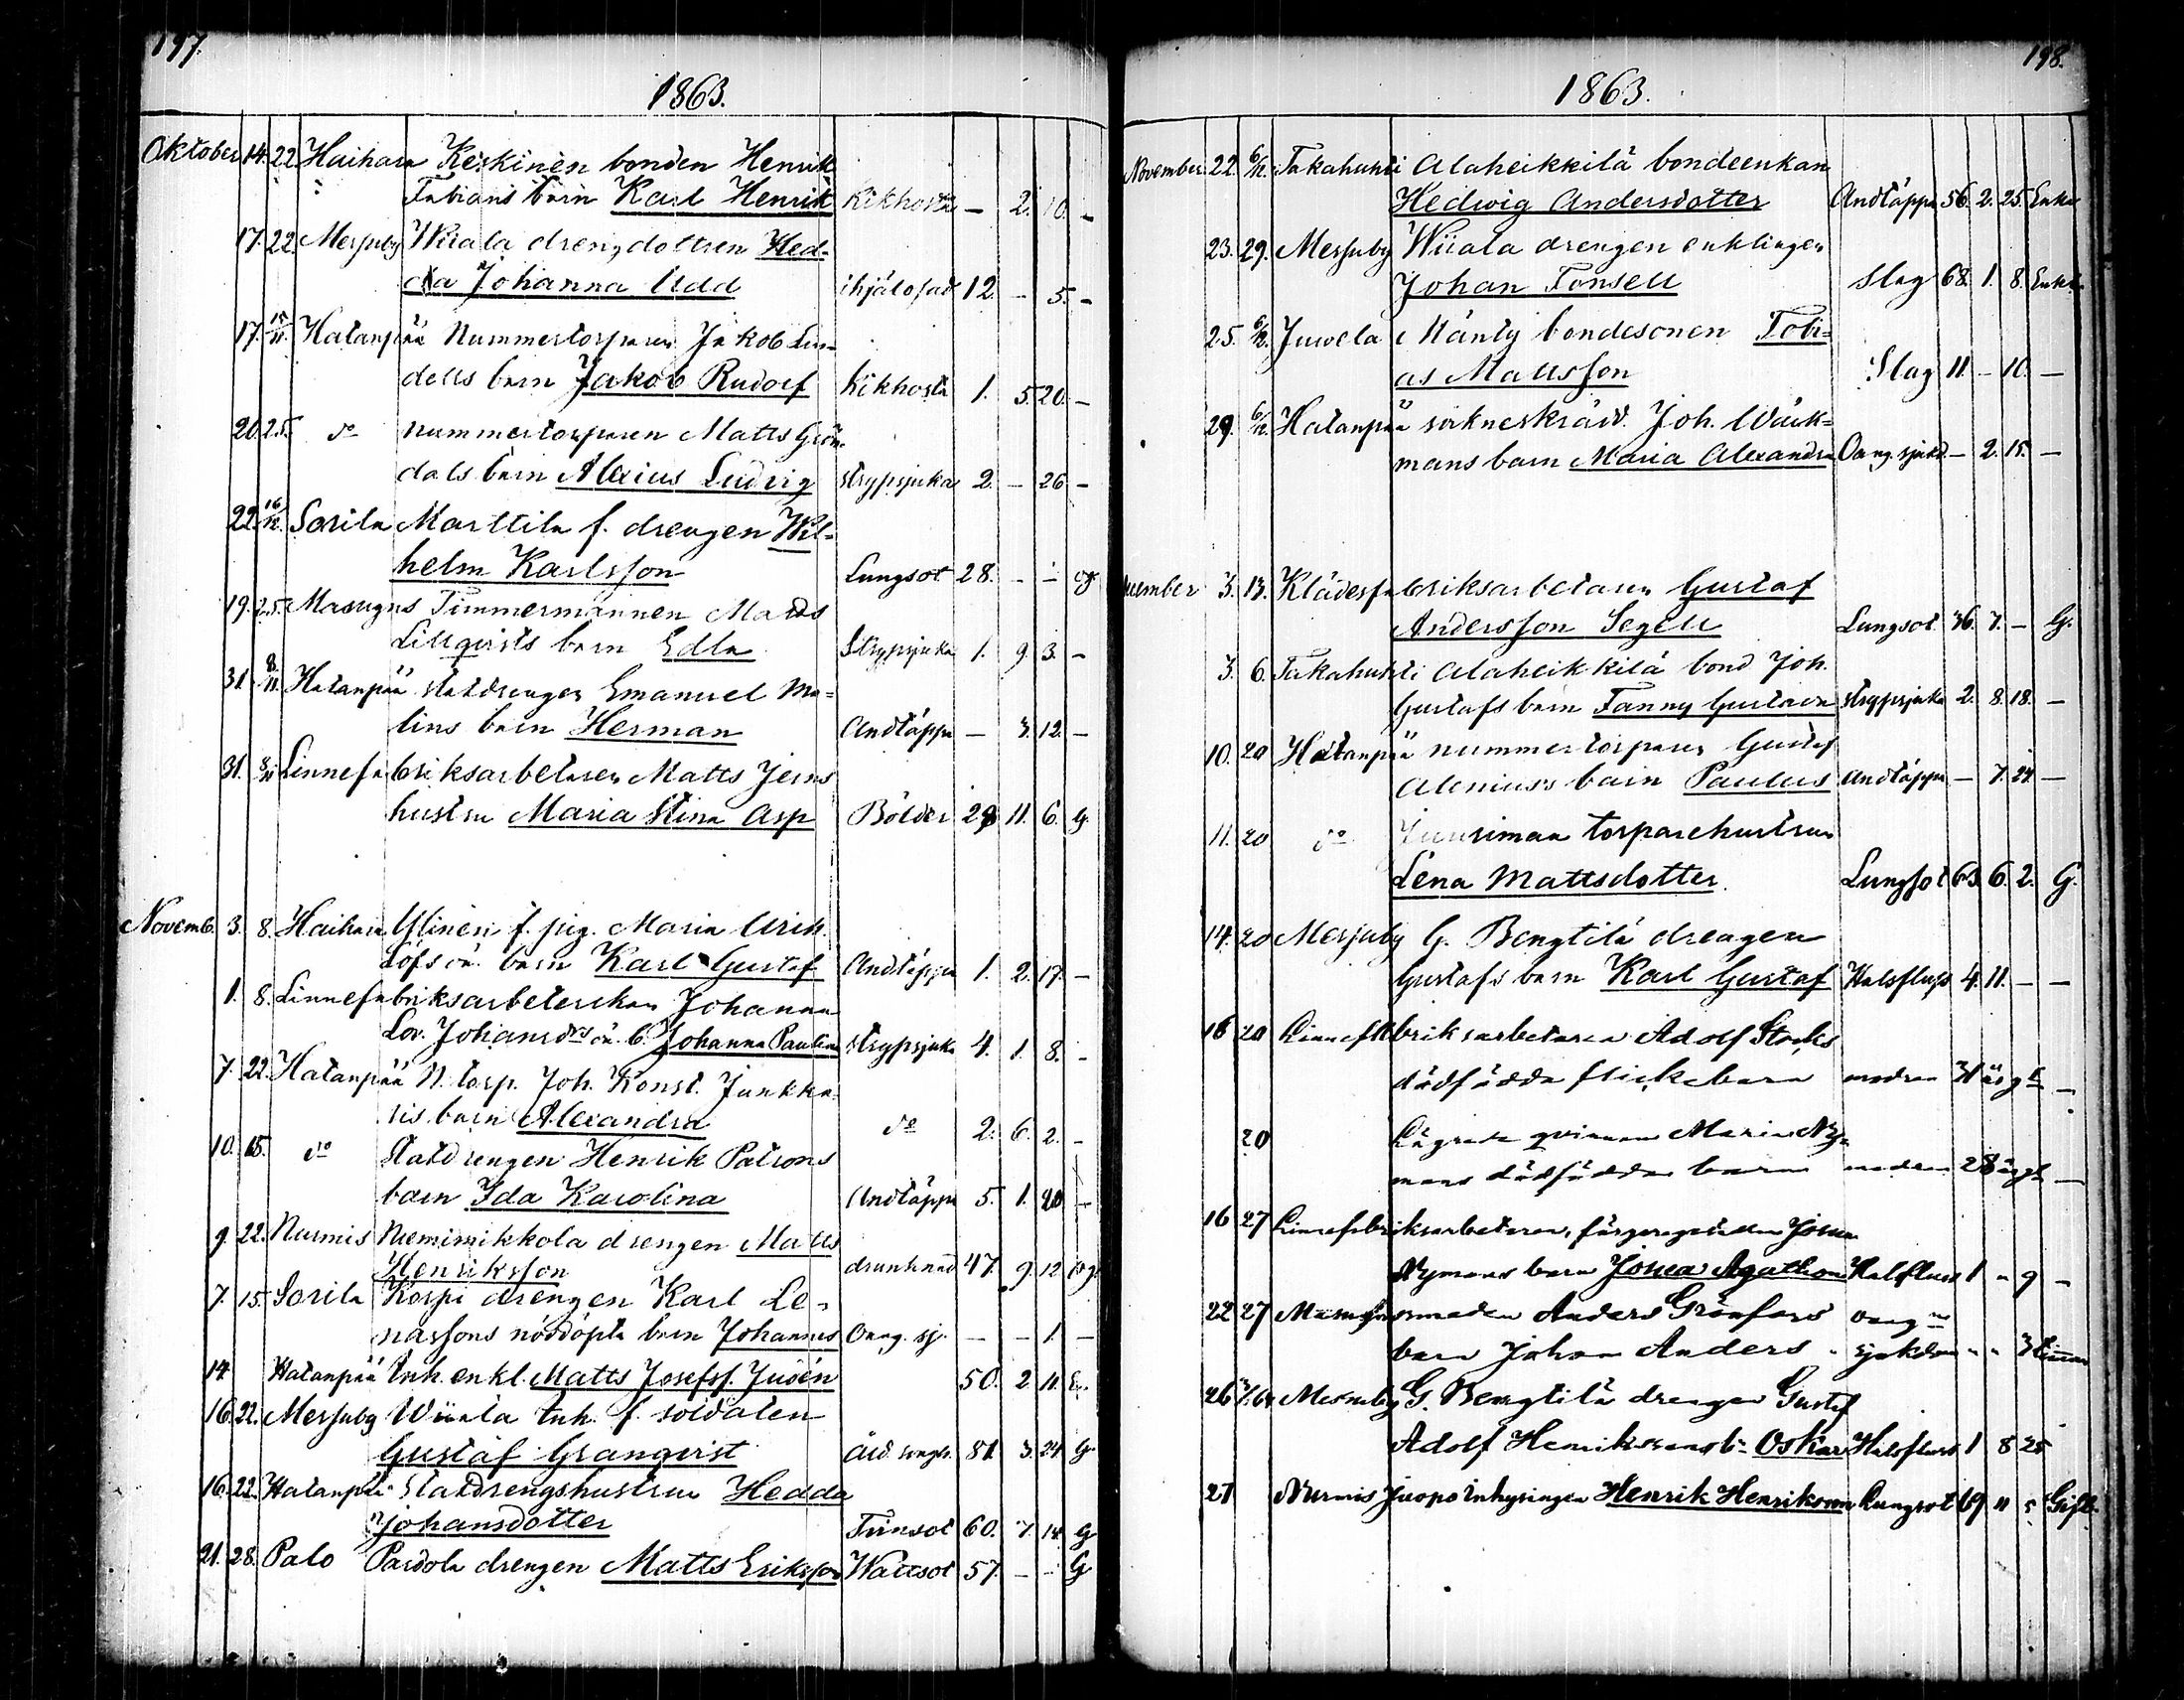 197.
1863.
Oktober 14. 22. Haihara Keskinen bonden Henrik
Fabians barn Karl Henrik Kikhosta — 2. 10. —
17. 22. Messuby Wiiala drengdottren Hed-
da Johanna Udd ihjälosad 12. — 5. —
17. 15/11. Hatanpää Nummertorparen Jakob Lin-
dells barn Jakob Rudolf Kikhosta 1. 5. 20. —
20. 25. do nummertorparen Matts Grön-
dals barn Alexius Ludvig strypsjuka 2. — 26 —
22. 16/12. Sorila Marttila f. drengen Wil-
helm Karlsson Lungsot 28. — — og
19. 25. Masugns Timmermannen Matts
Lillqvists barn Edla Strypsjuka 1. 9. 3. —
31. 8/11. Hatanpää statdrengen Emanuel Ma-
lins barn Herman Andtäppa — 3. 12. —
31. 8/11 Linnefabriksarbetaren Matts Jerns
hustru Maria Stina Asp Bölder 29 11. 6. G.
Novemb. 3. 8. Haihara Ylinen f. pig. Maria Urik.
Löfs oä. barn Karl Gustaf Andtäppa 1. 2. 17. —
1. 8. Linnefabriksarbeterskan Johanna
Lov. Johansdrs oä. b. Johanna Paulina strypsjuka 4. 1. 8. —
7. 22. Hatanpää N. torp. Joh. Konst. Junkka-
ris barn Alexandra do 2. 6. 2. —
10. 15. do Statdrengen Henrik Patrons
barn Ida Karolina Andtäppa 5. 1. 20 —
9. 22. Nurmis Niemimikkola drengen Matts
Henriksson drunknad 47. 9. 12
7. 15. Sorila Korpi drengen Karl Le-
nassons nöddöpta barn Johannes Oang. sj. — — 1. —
14 Hatanpää Inh. enkl. Matts Josefss. Judén 50. 2 11. E.
16. 22. Messuby Wiiala Inh. f. soldaten
Gustaf Granqvist 81. 3. 24 G.
16. 22. Hatanpää Statdrengshustrun Hedda
Johansdotter Tvinsot 60. 7. 14. G
21. 28. Palo Pardola drengen Matts Eriksson Wattsot 57. — — G
198.
1863.
November 22. 6/12. Takahuhti Alaheikkilä bondeenkan
Hedwig Andersdotter Andtäppa 56. 2. 25. Enka
23. 29. Messuby Wiiala drengen enklingen
Johan Fonsell Slag 68. 1. 8. Enkl.
25. 6/12. Juvela Mänty bondesonen Tobi-
as Mattsson Slag 11. — 10. —
29. 6/12 Hatanpää sokneskrädd. Joh. Wäik-
mans barn Maria Alexandra Oang. sjukd. — 2. 15. —
December 3. 13. Klädesfabriksarbetaren Gustaf
Andersson Segell Lungsot. 36. 7. — G.
3. 6. Takahuhti Alaheikkilä bond Joh.
Gustafs barn Fanny Gustava Strypsjuka 2. 8. 18. —
10. 20 Hatanpää nummertorparen Gustaf
Alenius's barn Paulus Andtäppa — 7. 24. —
11. 20 do Juurimaa torparehustrun
Lena Mattsdotter. Lungsot 63. 6. 2. G.
14. 20 Messuby G. Bengtilä drengen
Gustafs barn Karl Gustaf Halsfluss 4. 11. — —
16 20 Linnefabriksarbetaren Adolf Starks
dödfödda flickebarn modren 31 år g. —
20 Lägrade qvinnan Maria Ny-
mans dödfödda barn modren 28 år —
16 27 Linnefabriksarbetaren, färgaregesällen Josua
Nymans barn Josua Agathon Halsfluss 1 „ 9 —
22 27 Masugnsmeden Anders Grönfors oang.
barn Johan Anders sjukdom „ „ 3 timmar
26 3/1 64 Messuby G. Bengtilä drengen Gustaf
Adolf Henrikssons b. Oskar Halsfluss 1 8 25
27 Nurmis Juopo Inhysingen Henrik Henriksson Lungsot 69 11 5 Gift.